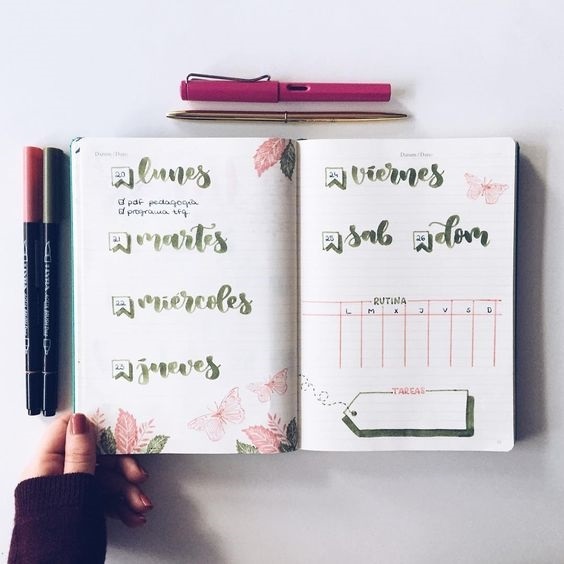 Datum / Date:
20 lunes
pdf pedagogía
programa tfg
21 martes
22 miércoles
23 jueves
Datum / Date:
24 viernes
25 sab 26 dom
RUTINA
L M X J V S D
TAREAS